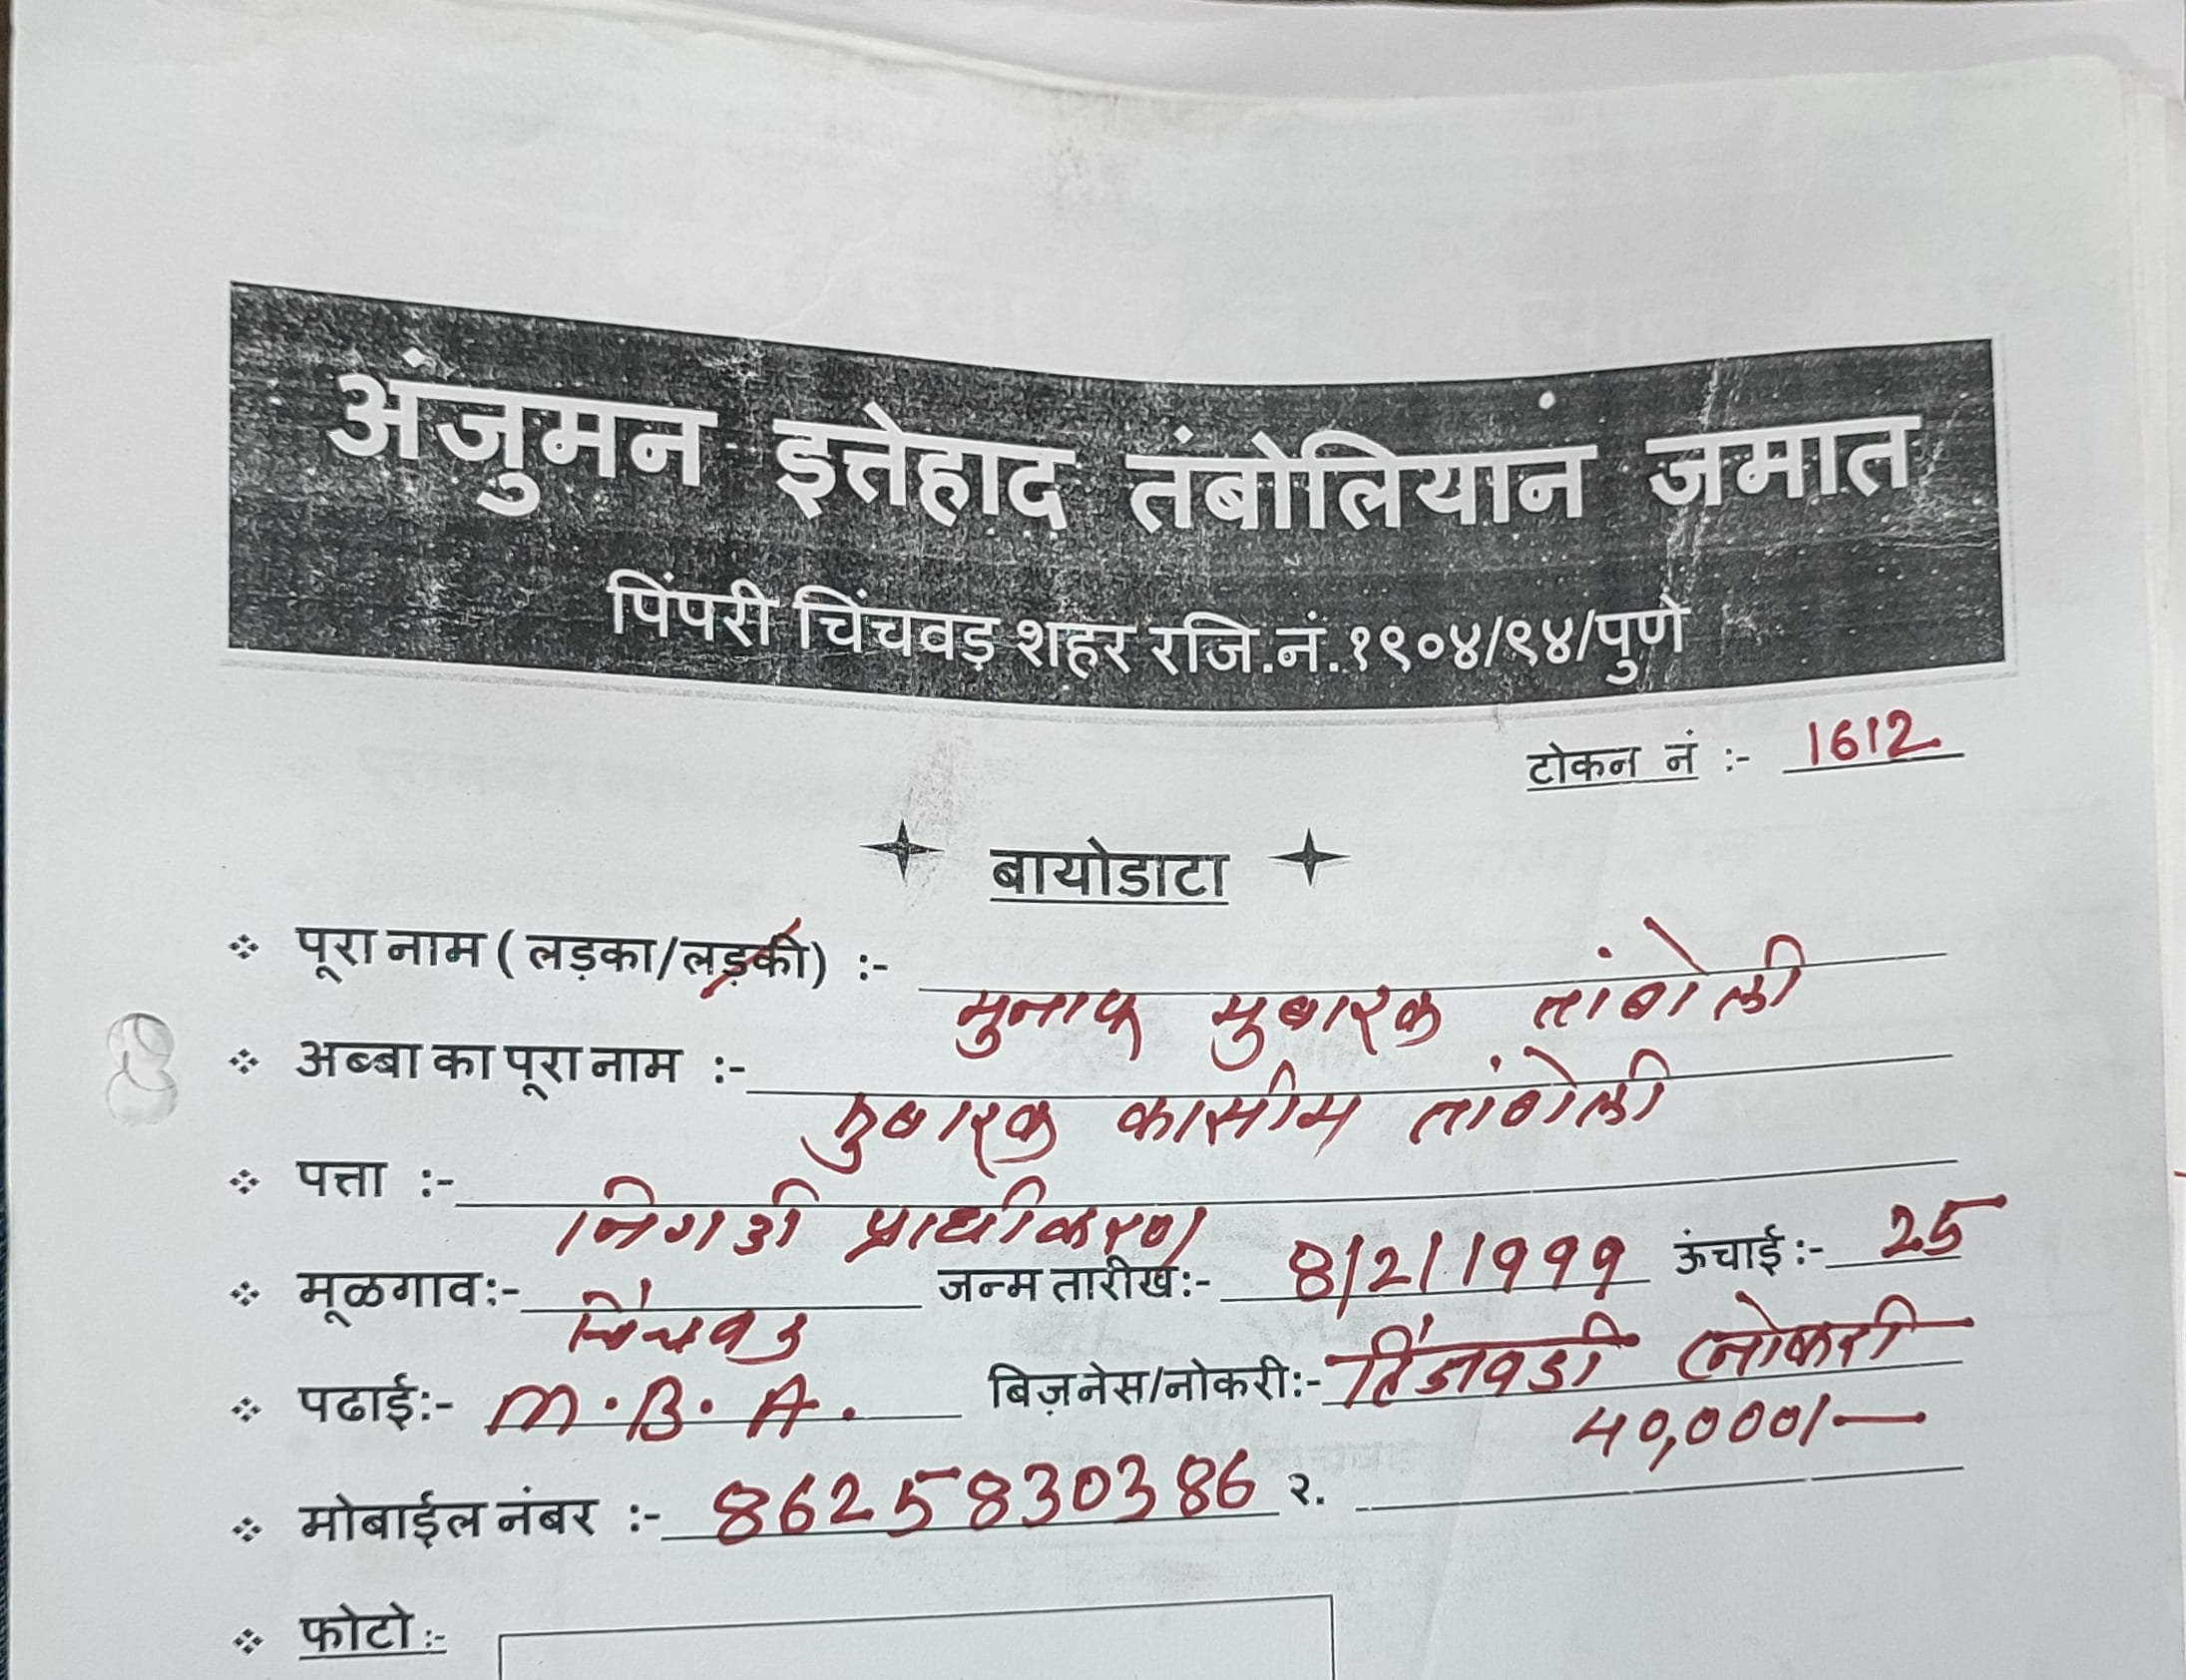 अंजुमन इत्तेहाद तंबोलियान जमात
पिंपरी चिंचवड़ शहर रजि.नं.१९०४/९४/पुणे
टोकन नं :- 1612
बायोडाटा
पूरा नाम ( लड़का/लड़की) :- मुनाफ मुबारक तांबोली
अब्बा का पूरा नाम :- मुबारक कासीम तांबोली
पत्ता :- निगडी प्राधीकरण
मूळगाव:- चिंचवड जन्म तारीख:- 8/2/1999 ऊंचाई :- 25
पढाई:- M.B.A. बिज़नेस/नोकरी:- हिंजवडी नोकरी
40,000/-
मोबाईल नंबर :- 8625830386 २.
फोटो :-